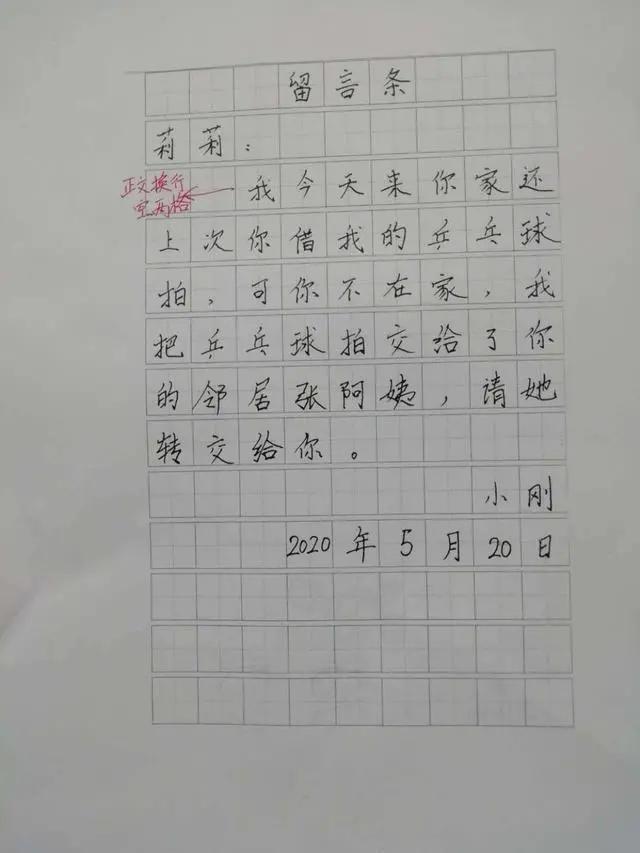 留言条
莉莉：
正文换行
空两格
我今天来你家还
上次你借我的乒乓球
拍，可你不在家，我
把乒乓球拍交给了你
的邻居张阿姨，请她
转交给你。
小刚
2020年5月20日